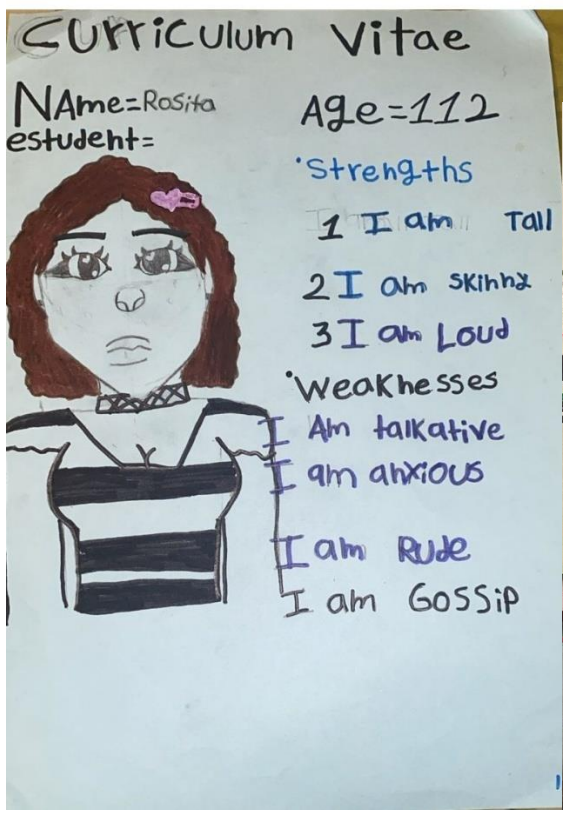 Curriculum Vitae
NAme=Rosita
estudent=
Age=112
•Strengths
1 I am Tall
2 I am skinny
3 I am Loud
•Weaknesses
I Am talkative
I am anxious
I am Rude
I am GOSSiP